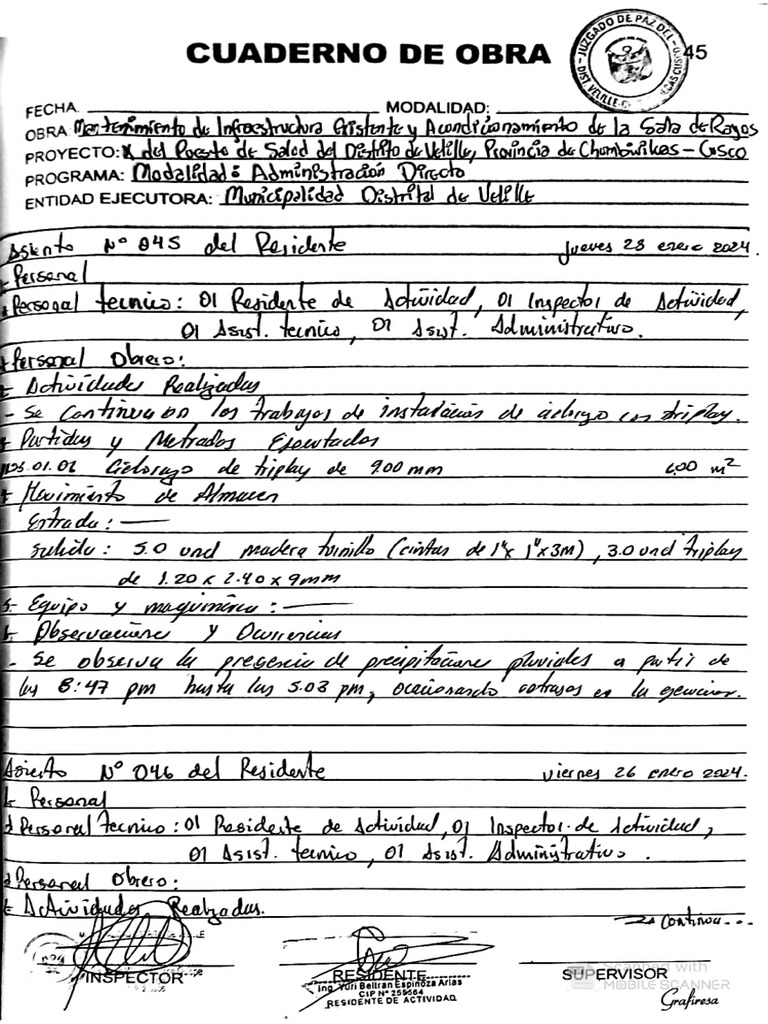 CUADERNO DE OBRA
JUZGADO DE PAZ DEL
45
FECHA. MODALIDAD:
OBRA Mantenimiento de Infraestructura Existente y Acondicionamiento de la Sala de Rayos
PROYECTO: X del Puesto de Salud del Distrito de Velille, Provincia de Chumbivilcas - Cusco
PROGRAMA: Modalidad: Administración Directa
ENTIDAD EJECUTORA: Municipalidad Distrital de Velille
Asiento Nº 045 del Residente jueves 25 enero 2024.
- Personal
Personal tecnico: 01 Residente de Actividad, 01 Inspector de Actividad,
01 Asist. tecnico, 01 Asist. Administrativo.
Personal Obrero:
- Actividades Realizadas
- Se continuaron los trabajos de instalación de cieloraso con triplay.
Partidas y Metrados Ejecutados
05.01.01 Cieloraso de triplay de 9.00 mm 6.00 m²
Movimiento de Almacen
Entrada: —
salida: 5.0 und madera tornillo (cintas de 1"x 1"x3M), 3.0 und triplay
de 1.20 x 2.40 x 9mm
5- Equipo y maquinaria: —
6- Observaciones y Ocurrencias
- Se observa la presencia de precipitaciones pluviales a partir de
las :47 pm hasta las 5:03 pm, ocasionando retrasos en la ejecucion.
Asiento Nº 046 del Residente viernes 26 enero 2024.
1- Personal
Personal tecnico: 01 Residente de Actividad, 01 Inspector de Actividad,
01 Asist. tecnico, 01 Asist. Administrativo.
Personal Obrero:
Actividades Realizadas.
Continua...
INSPECTOR RESIDENTE SUPERVISOR
Ing. Yuri Beltran Espinoza Arias
CIP Nº 259564
RESIDENTE DE ACTIVIDAD
Scanned with
MOBILE SCANNER
Grafiresa